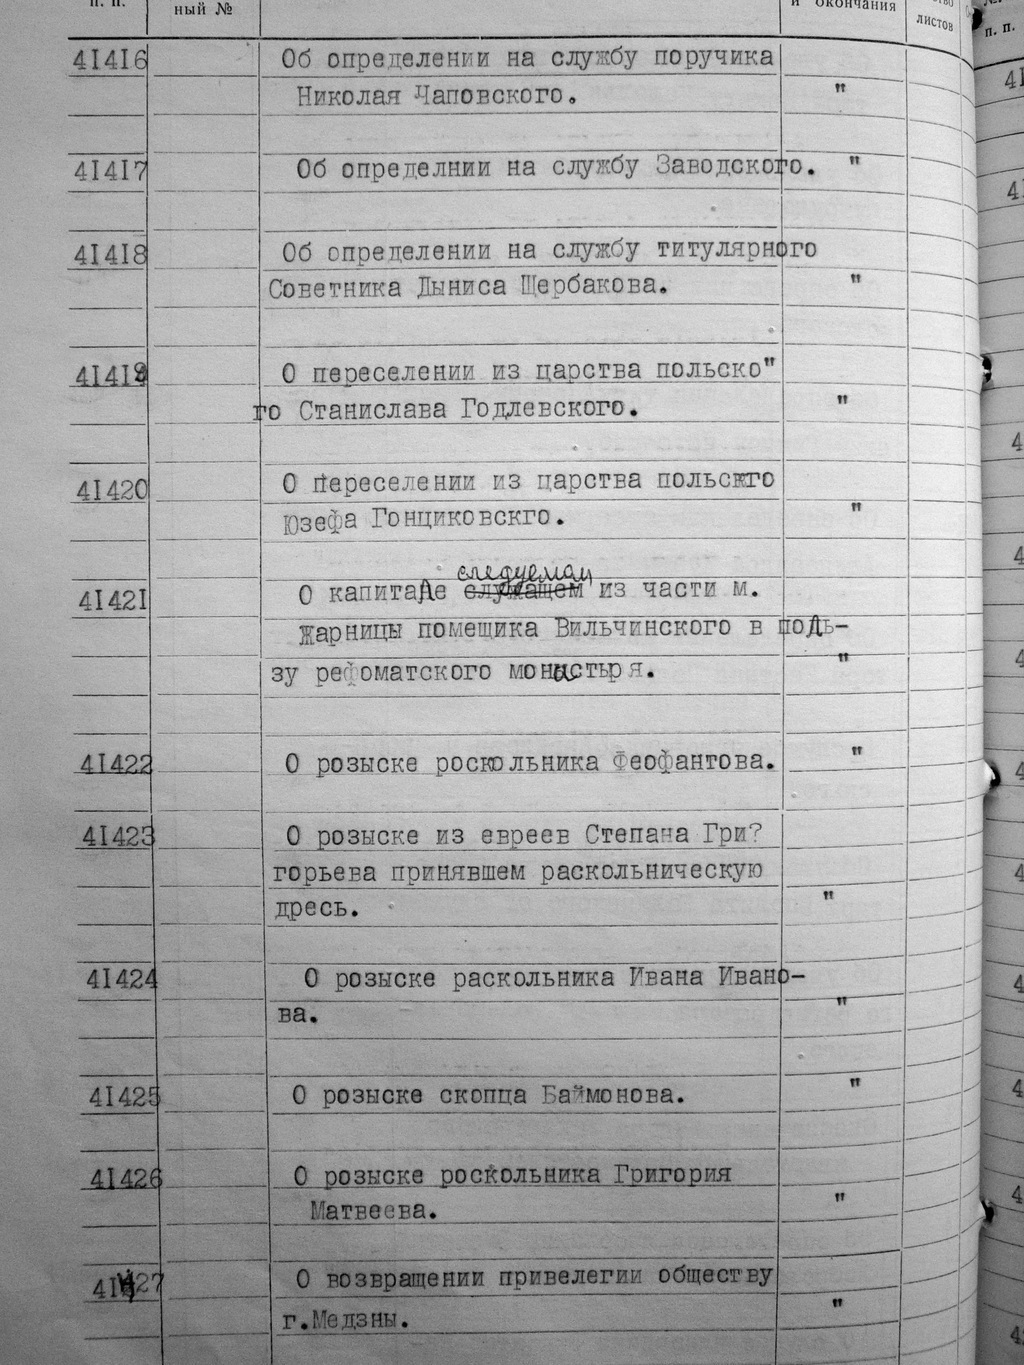 п. п.
ный №
и окончания
листов
п. п.
41416 Об определении на службу поручика
Николая Чаповского. "
41417 Об определнии на службу Заводского. "
41418 Об определении на службу титулярного
Советника Дыниса Щербакова. "
41419 О переселении из царства польско"
го Станислава Годлевского. "
41420 О переселении из царства польскго
Юзефа Гонциковскго. "
следуемом
41421 О капитале служащем из части м.
Жарницы помещика Вильчинского в поль-
зу рефоматского монастыря. "
41422 О розыске роскольника Феофантова. "
41423 О розыске из евреев Степана Гри?
горьева принявшем раскольническую
дресь. "
41424 О розыске раскольника Ивана Ивано-
ва. "
41425 О розыске скопца Баймонова. "
41426 О розыске роскольника Григория
Матвеева. "
41427 О возвращении привелегии обществу
г.Медзны. "